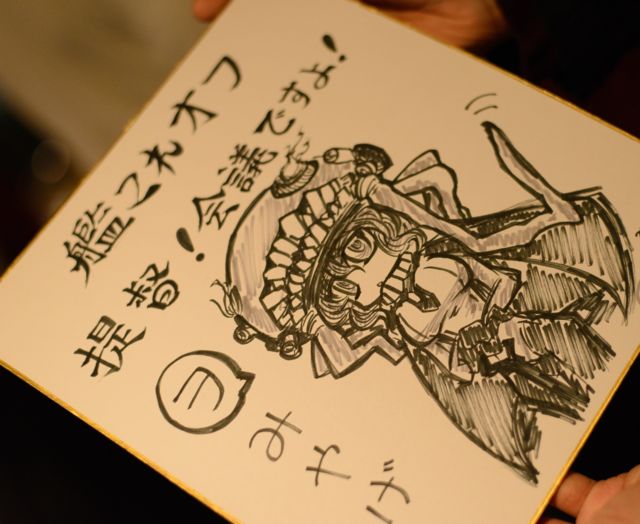 艦これオフ
提督！会議ですよ！
ヲ
みやげ